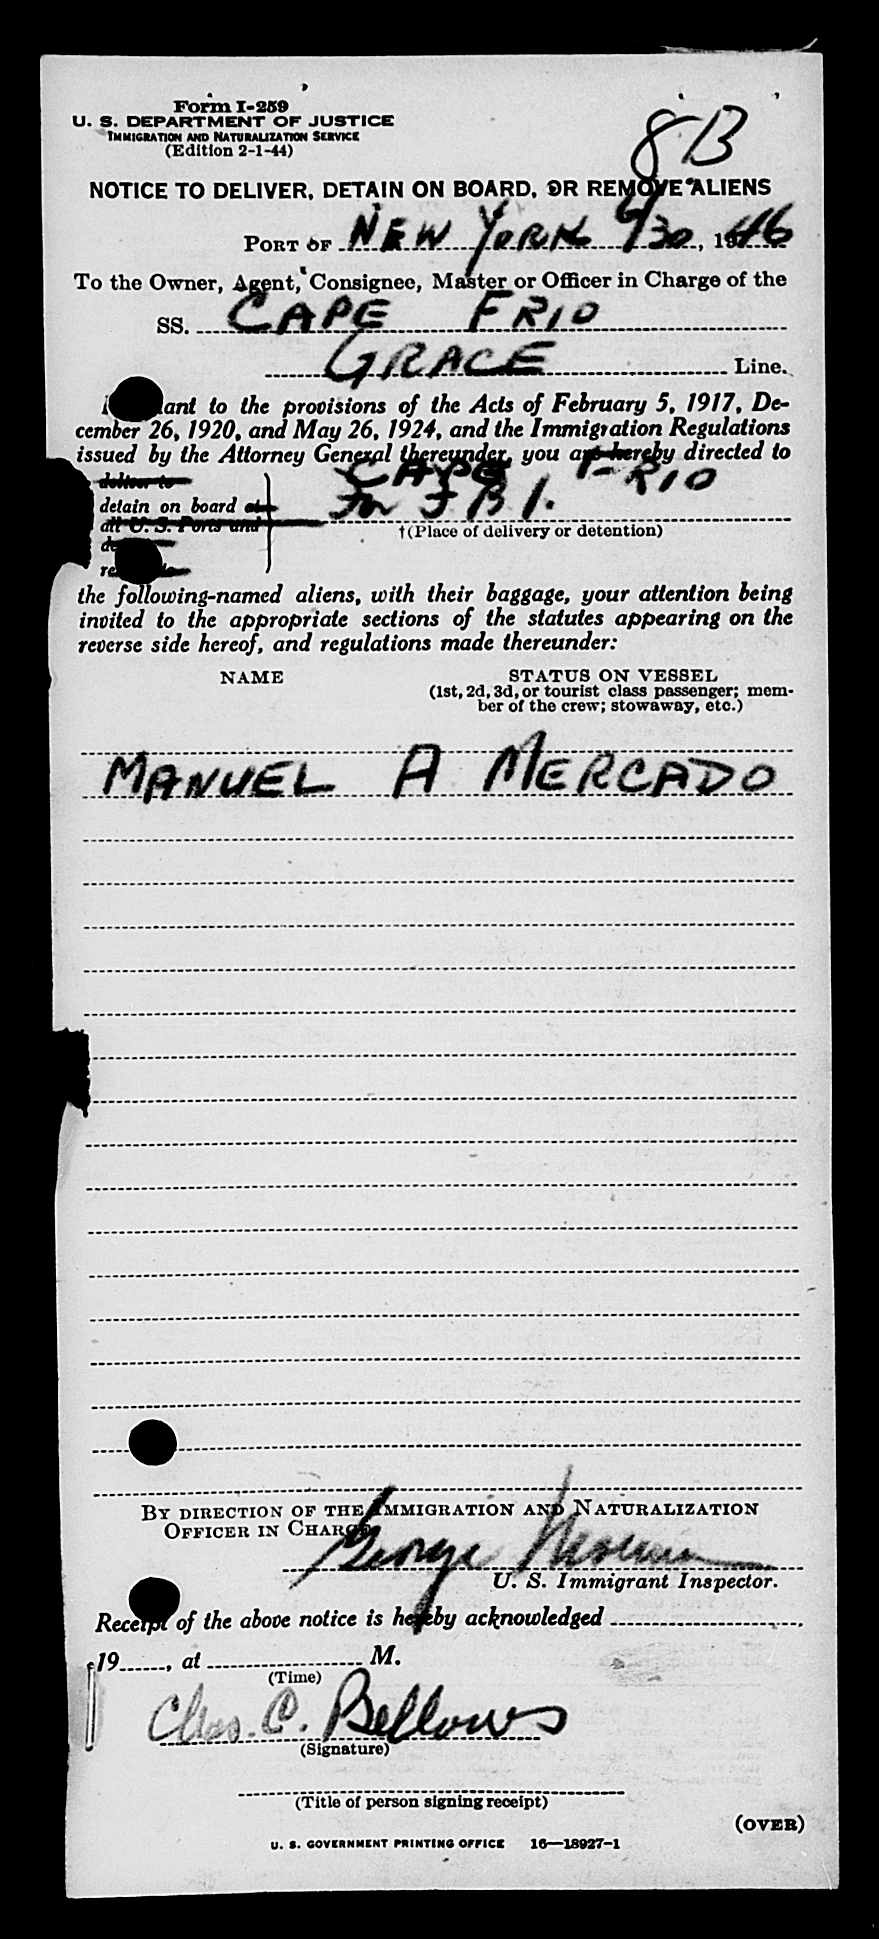 Form I-259
U. S. DEPARTMENT OF JUSTICE
IMMIGRATION AND NATURALIZATION SERVICE
(Edition 2-1-44)
8B
NOTICE TO DELIVER, DETAIN ON BOARD, OR REMOVE ALIENS
PORT OF NEW YORK /30, 1946
To the Owner, Agent, Consignee, Master or Officer in Charge of the
SS. CAPE FRIO
GRACE Line.
ant to the provisions of the Acts of February 5, 1917, De-
cember 26, 1920, and May 26, 1924, and the Immigration Regulations
issued by the Attorney General thereunder, you are hereby directed to
deliver to
CAPE FRIO
detain on board at
For F B I.
all U. S. Ports and
†(Place of delivery or detention)
the following-named aliens, with their baggage, your attention being
invited to the appropriate sections of the statutes appearing on the
reverse side hereof, and regulations made thereunder:
NAME STATUS ON VESSEL
(1st, 2d, 3d, or tourist class passenger; mem-
ber of the crew; stowaway, etc.)
MANUEL A MERCADO
BY DIRECTION OF THE IMMIGRATION AND NATURALIZATION
OFFICER IN CHARGE
George
U. S. Immigrant Inspector.
Receipt of the above notice is hereby acknowledged
19, at M.
(Time)
Chas. C. Bellows
(Signature)
(Title of person signing receipt)
(OVER)
U. S. GOVERNMENT PRINTING OFFICE 16—18927-1